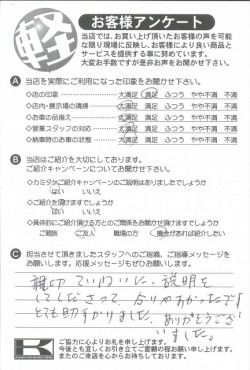 軽
お客様アンケート
当店では、お買い上げ頂いたお客様の声を可能
な限り現場に反映し、お客様により良い商品と
サービスを提供する事に努めています。
大変お手数ですが是非お声をお聞かせ下さい。
A 当店を実際にご利用になった印象をお聞かせ下さい。
◇店の印象 大満足 満足 ふつう やや不満 不満
◇店内・展示場の清掃 大満足 満足 ふつう やや不満 不満
◇お車の品揃え 大満足 満足 ふつう やや不満 不満
◇営業スタッフの対応 大満足 満足 ふつう やや不満 不満
◇納車時のお車の状態 大満足 満足 ふつう やや不満 不満
B 当店はご紹介を大切にしております。
ご紹介キャンペーンについてお聞かせ下さい。
ご紹介キャンペーンのご説明はありましたでしょうか
はい いいえ
はい いいえ
◇具体的にご紹介頂ける方とのご関係をお聞かせ頂けますでしょうか
ご親族 ご友人 職場の方 機会があれば紹介したい
C 担当させて頂きましたスタッフへのご指摘、ご指導メッセージを
お願いします。応援メッセージもぜひお願いします。
親切、ていねいに、説明を
してくださって、分かりやすかったです
とても助かりました。ありがとうござ
いました。
K
ご協力に心よりお礼を申し上げます。
今後とも宜しくお引き立てご愛顧の程お願い申し上げます。
またのご来店を心からお待ちしております。